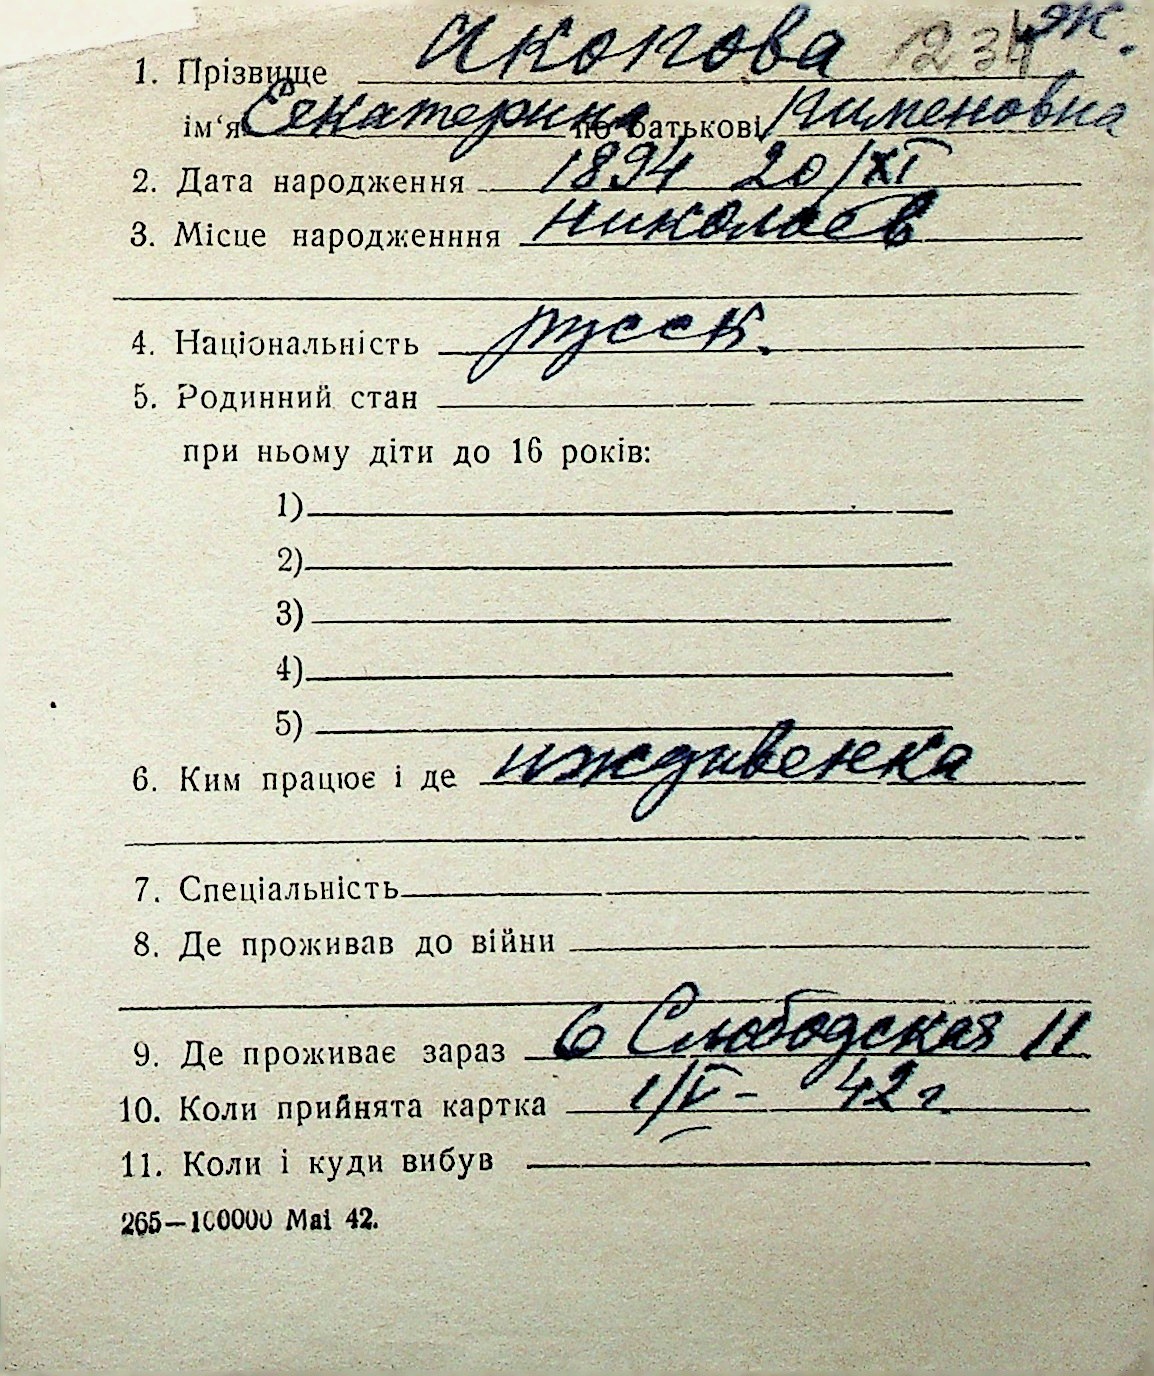 1. Прізвище Икопова 1234 ж.
ім'я Екатерина по батькові Пименовна
2. Дата народження 1894 20/XI
3. Місце народженння Николаев
4. Національність русск.
5. Родинний стан
при ньому діти до 16 років:
1)
2)
3)
4)
5)
6. Ким працює і де иждивенка
7. Спеціальність
8. Де проживав до війни
9. Де проживає зараз 6 Слободская 11
10. Коли прийнята картка 1/V - 42 г.
11. Коли і куди вибув
265—100000 Mai 42.